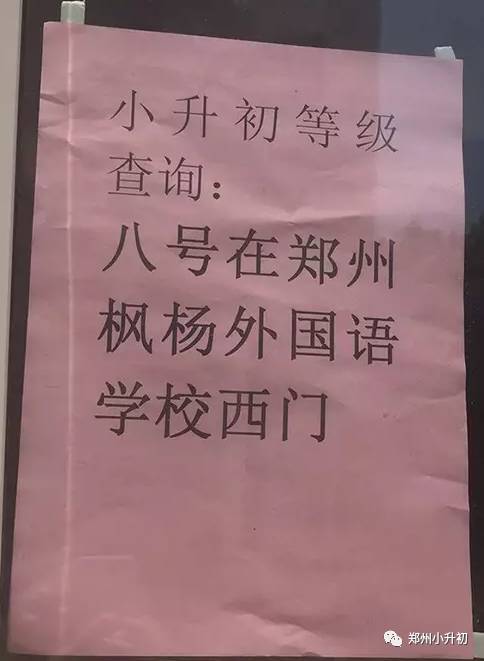 小升初等级
查询：
八号在郑州
枫杨外国语
学校西门
郑州小升初